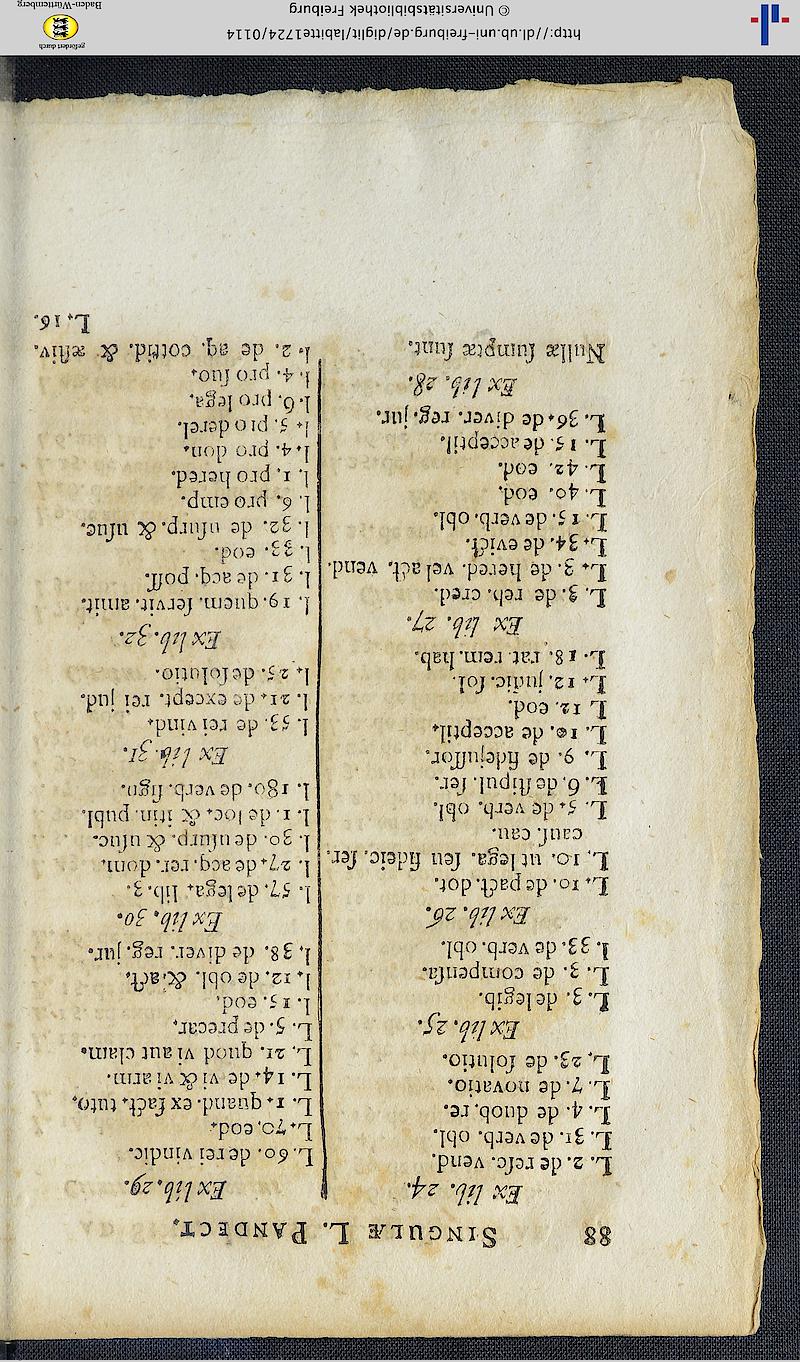 88 SINGULÆ L. PANDECT.
Ex lib. 24.
L. 2. de resc. vend.
L. 31. de verb. obl.
L. 4. de duob. re.
L. 7. de novatio.
L. 23. de solutio.
Ex lib. 25.
L. 3. de legib.
L. 3. de compensa.
l. 33. de verb. obl.
Ex lib. 26.
L. 10. de pact. dot.
L. 10. ut lega. seu fideic. ser.
cauſ. cau.
L. 5. de verb. obl.
L. 6. de ſtipul. ſer.
L. 9. de fidejuſſor.
L. 10. de acceptil.
L 12. eod.
L. 12. judic. ſol.
L. 18. rat. rem. hab.
Ex lib. 27.
L. 3. de reb. cred.
L. 3. de hered. vel act. vend.
L. 34. de evict.
L. 15. de verb. obl.
L. 40. eod.
L. 42. eod.
L. 15. de acceptil.
L. 36. de diver. reg. jur.
Ex lib. 28.
Nullæ ſumptæ ſunt.
Ex lib. 29.
L. 60. de rei vindic.
L. 70. eod.
L. 1. quand. ex fact. tuto.
L. 14. de vi & vi arm.
L. 21. quod vi aut clam.
L. 5. de precar.
l. 15. eod.
l. 12. de obl. & act.
l. 38. de diver. reg. jur.
Ex lib. 30.
l. 57. de lega. lib. 3.
l. 27. de acq. rer. dom.
l. 30. de uſurp. & uſuc.
l. 1. de loc. & itin. publ.
l. 180. de verb. ſign.
Ex lib. 31.
l. 53. de rei vind.
l. 21. de except. rei jud.
l. 25. de ſolutio.
Ex lib. 32.
l. 19. quem. ſervit. amit.
l. 31. de acq. poſſ.
l. 33. eod.
l. 32. de uſurp. & uſuc.
l. 6. pro emp.
l. 1. pro hered.
l. 4. pro don.
l. 5. pro derel.
l. 6. pro lega.
l. 4. pro ſuo.
l. 2. de aq. cottid. & æſtiv.
L. 16.
http://dl.ub.uni-freiburg.de/diglit/labitte1724/0114
© Universitätsbibliothek Freiburg
gefördert durch
Baden-Württemberg